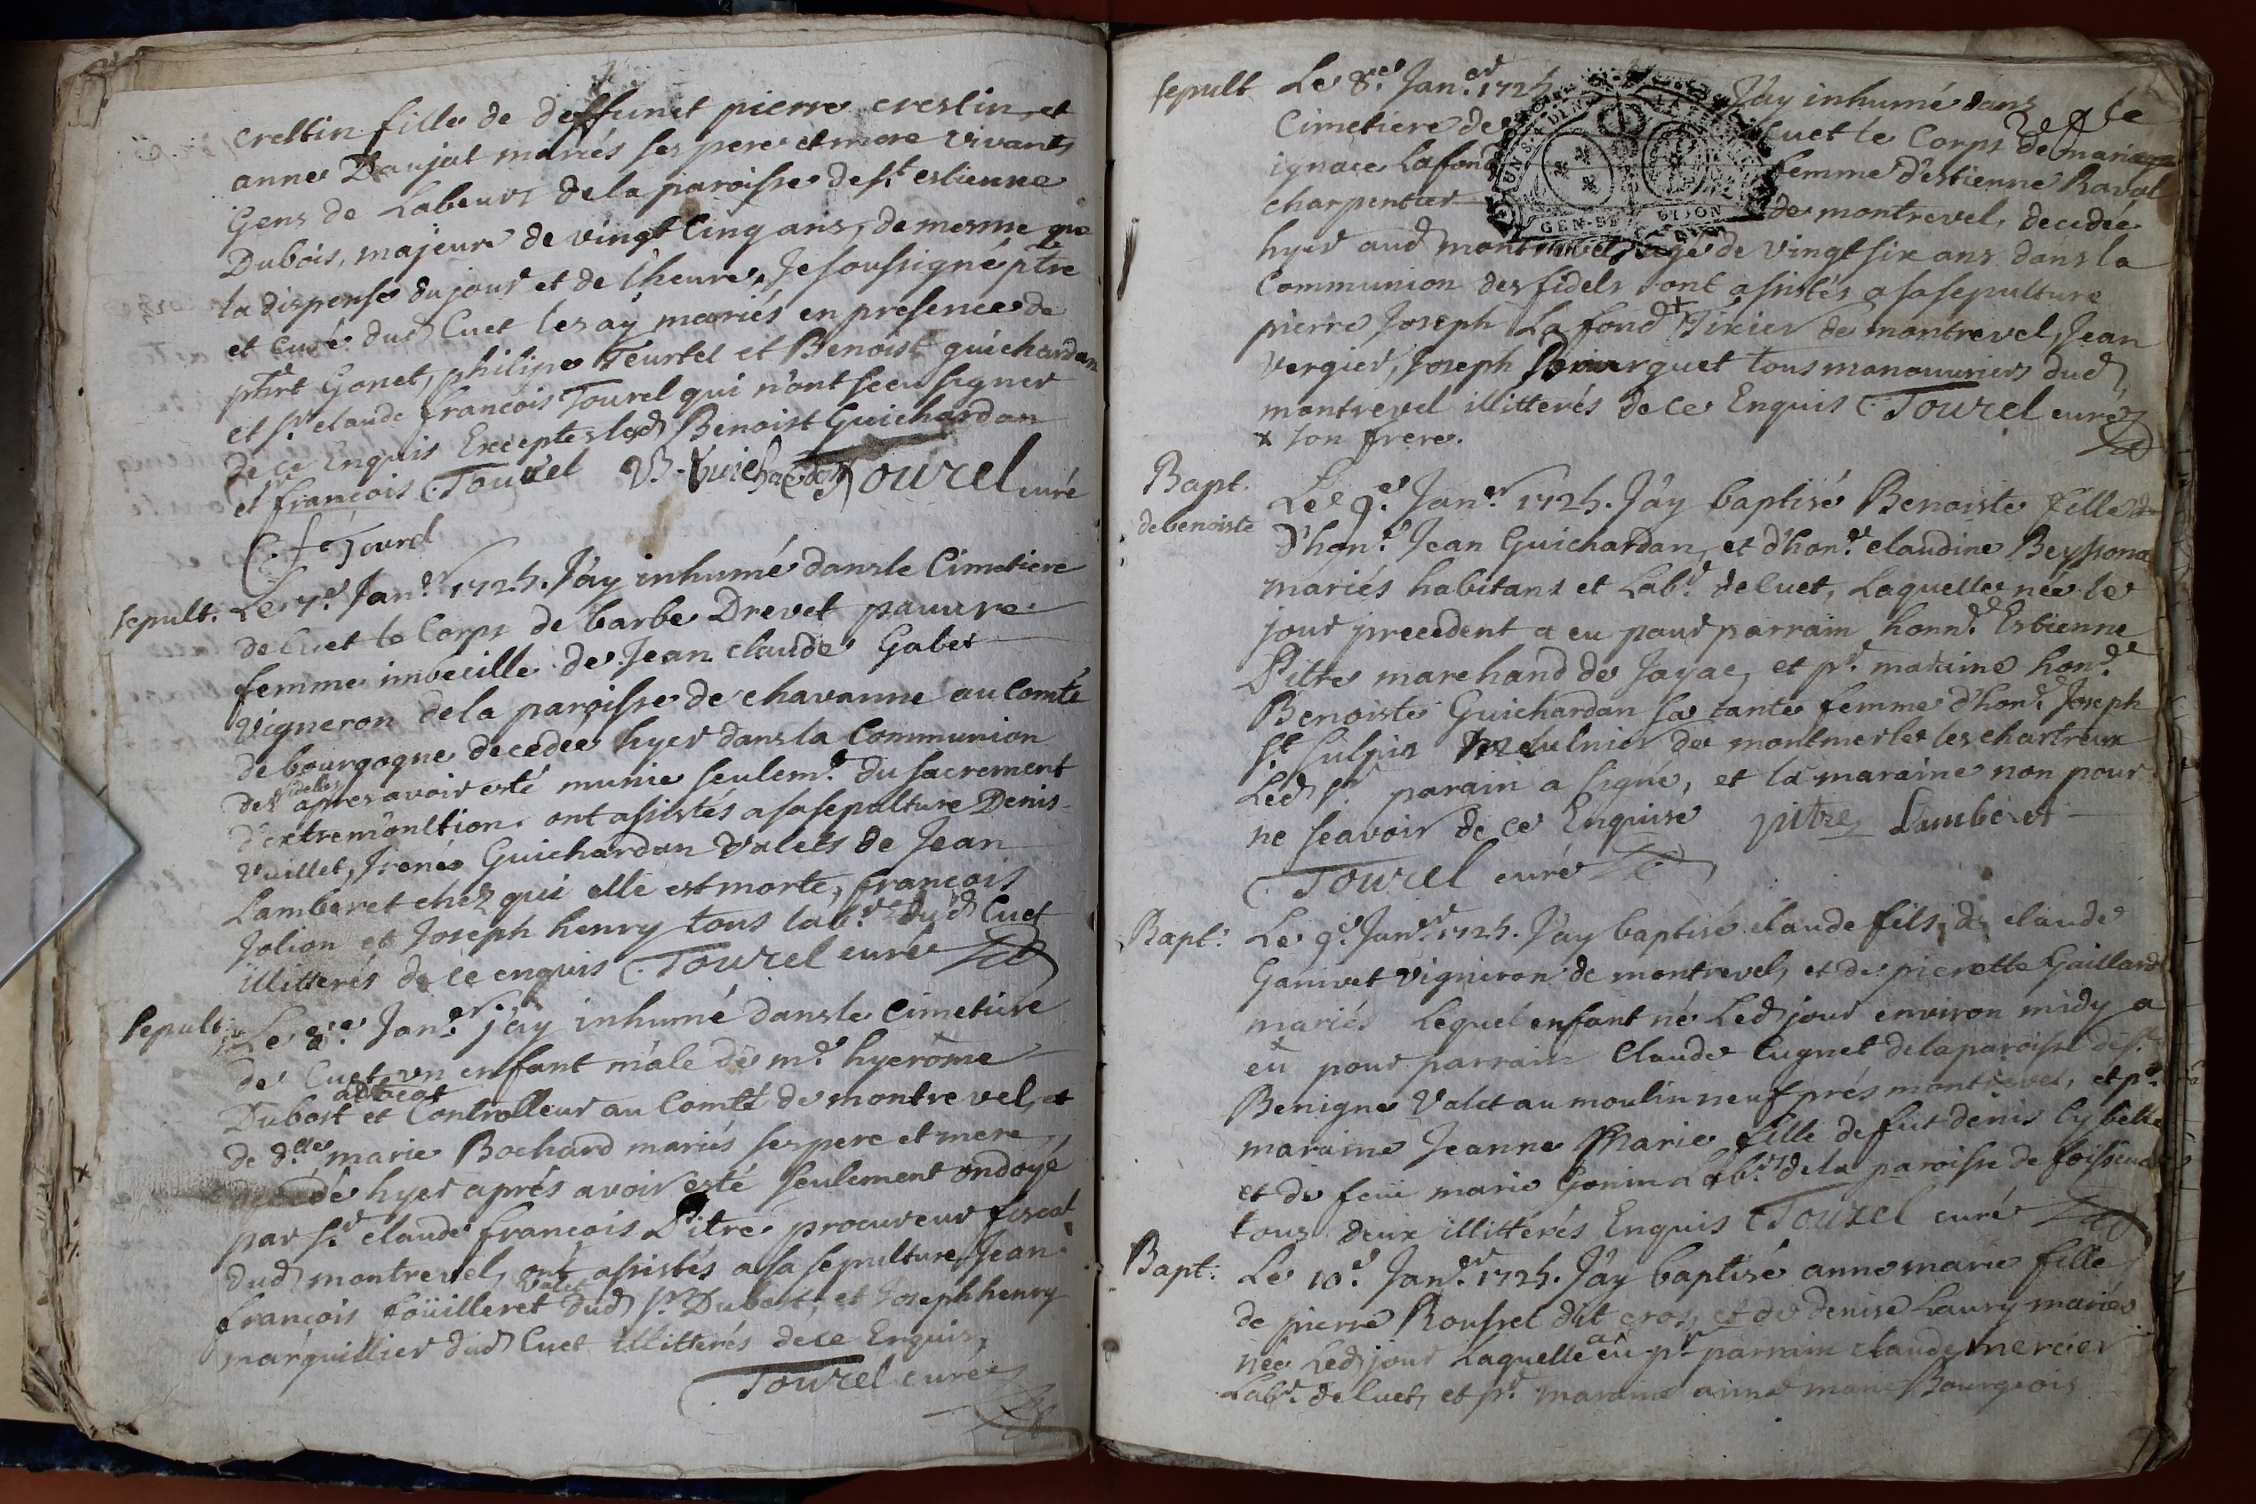 crestin fille de deffunct pierre crestin et
anne Daujat mariés ses pere et mere vivants
Gens de Labeurs de la paroisse de St estienne
Dubois, majeure de vingt cinq ans, de mesme que
la dispense du jour et de l'heure, Je soussigné ptre
et curé dud Cuet les ay mariés en presence de
phirt Gonet, philipe Teurtel et Benoist guichardan
et Sr claude françois Tourel qui n'ont sceu signer
de ce Enquis Excepter led Benoist Guichardan
et Sr françois Tourel B. Guichardan Tourel curé
C. f. Tourel
sepult. Le 7e Janer 1725. J'ay inhumé dans le Cimetiere
de Cuet le Corps de barbe Drevet pauvre
femme imbecille de Jean claude Gabet
vigneron de la paroisse de chavanne au Comté
de bourgogne decedee hyer dans la Communion
des fidelles apres avoir esté munie seulemt du sacrement
d'extremonction. ont assistés a sa sepulture Denis
Vuillet, Irenée Guichardan valets de Jean
Lamberet chez qui elle est morte, françois
Jolion et Joseph henry tous labrs dud Cuet
illitterés de ce enquis Tourel curé
sepult. Le 8e Janer j'ay inhumé dans le Cimetiere
de Cuet un enfant mâle de me hyerôme
Dubost advocat et Controlleur au Comté de montrevel, et
de dlle marie Bochard mariés ses pere et mere
decedé hyer aprés avoir esté seulement ondoyé
par Sr claude françois Pitre procureur fiscal
dud montrevel, ont assistés a sa sepulture Jean
françois foüilleret valet dud Sr Dubost, et Joseph henry
marguillier dud Cuet illitterés de ce Enquis,
Tourel curé
sepult Le 8e Janer 1725 J'ay inhumé dans le
Cimetiere de Cuet le Corps de marie
ignace Lafond femme d'estienne Raval
charpentier de montrevel, decedée
hyer aud montrevel agé de vingt six ans dans la
Communion des fidels ont assistés a sa sepulture
pierre Joseph La fond + Tixier de montrevel, Jean
vergier, Joseph Bourguet tous manouvriers dud
montrevel illitterés de ce Enquis Tourel curé
x son frere.
Bapt. de benoiste
Le 9e Janer 1725. J'ay baptisé Benoiste fille
d'honn. Jean Guichardan, et d'honn. claudine Beyssona
mariés habitans et Labrs de Cuet, Laquelle née le
jour precedent a eu pour parrain honn. Estienne
Pitre marchand de Jayac, et pr maraine hon.
Benoiste Guichardan sa tante femme d'hon. Joseph
St sulpis Meulnier de montmerle les chartreux
Led Sr parain a signé, et la maraine non pour
ne sçavoir de ce Enquise pitre Lamberet
Tourel curé
Bapt. Le 9e Janer 1725. J'ay baptisé claude fils de claude
Ganivet vigneron de montrevel, et de pierrette Gaillard
mariés Lequel enfant né Led jour environ midy a
eu pour parrain Claude Cugnet de la paroisse de St
Benigne Valet au moulin neuf prés montrevel, et pr
maraine Jeanne Marie fille de fut denis Cybelle
et de feüe marie Gonin Labrs de la paroisse de foissiat
tous deux illittérés Enquis Tourel curé
Bapt. Le 10e Janer 1725. J'ay baptisé anne marie fille
de pierre Roussel dit cros, et de denise Laury mariés
née Led jour Laquelle a eu pr parrain claude mercier
Labr de Cuet, et pr maraine anne marie Bourgeois